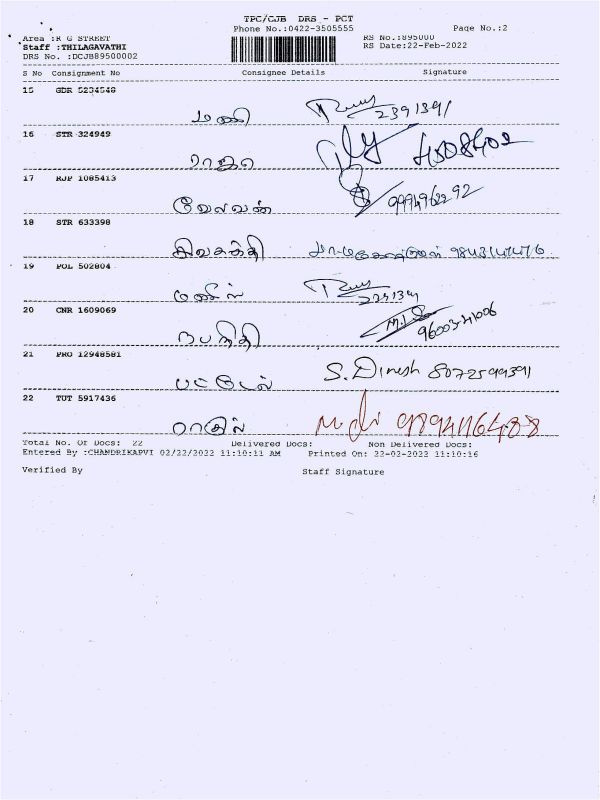 TPC/CJB DRS - PCT
Phone No.:0422-3505555
Page No.:2
Area :R G STREET
RS No.:895000
Staff :THILAGAVATHI
RS Date:22-Feb-2022
DRS No. :DCJB89500002
S No Consignment No Consignee Details Signature
15 GDR 5234548
மணி 2391391
16 STR 324949
ராஜா 4508402
17 RJP 1085413
வேலவன் 9994962292
18 STR 633398
சிவசக்தி
19 POL 502804
20 CNR 1609069
21 PRO 12948581
பட்டேல் S. Dinesh 8072599391
22 TUT 5917436
ராகுல் 9894116488
Total No. Of Docs: 22 Delivered Docs: Non Delivered Docs:
Entered By :CHANDRIKAPVI 02/22/2022 11:10:11 AM Printed On: 22-02-2022 11:10:16
Verified By Staff Signature